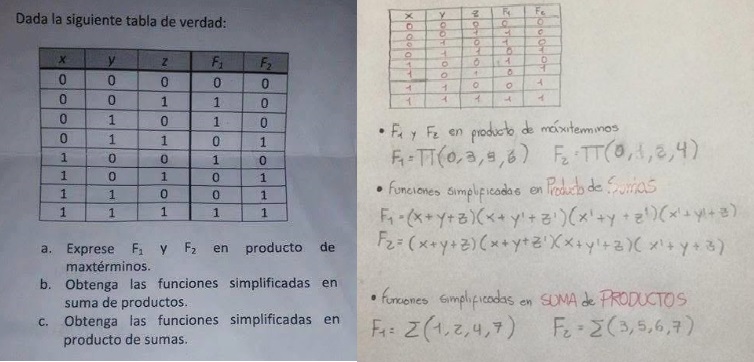 Dada la siguiente tabla de verdad:
x y z F₁ F₂
0 0 0 0 0
0 0 1 1 0
0 1 0 1 0
0 1 1 0 1
1 0 0 1 0
1 0 1 0 1
1 1 0 0 1
1 1 1 1 1
a. Exprese F₁ y F₂ en producto de
maxtérminos.
b. Obtenga las funciones simplificadas en
suma de productos.
c. Obtenga las funciones simplificadas en
producto de sumas.
x y z F₁ F₂
0 0 0 0 0
0 0 1 1 0
0 1 0 1 0
0 1 1 0 1
1 0 0 1 0
1 0 1 0 1
1 1 0 0 1
1 1 1 1 1
• F₁ y F₂ en producto de máxiterminos
F₁=Π(0,3,5,6) F₂=Π(0,1,2,4)
• Funciones simplificadas en Producto de Sumas
F₁=(x+y+z)(x+y'+z')(x'+y+z')(x'+y'+z)
F₂=(x+y+z)(x+y+z')(x+y'+z)(x'+y+z)
• Funciones simplificadas en SUMA de PRODUCTOS
F₁= Σ(1,2,4,7) F₂=Σ(3,5,6,7)